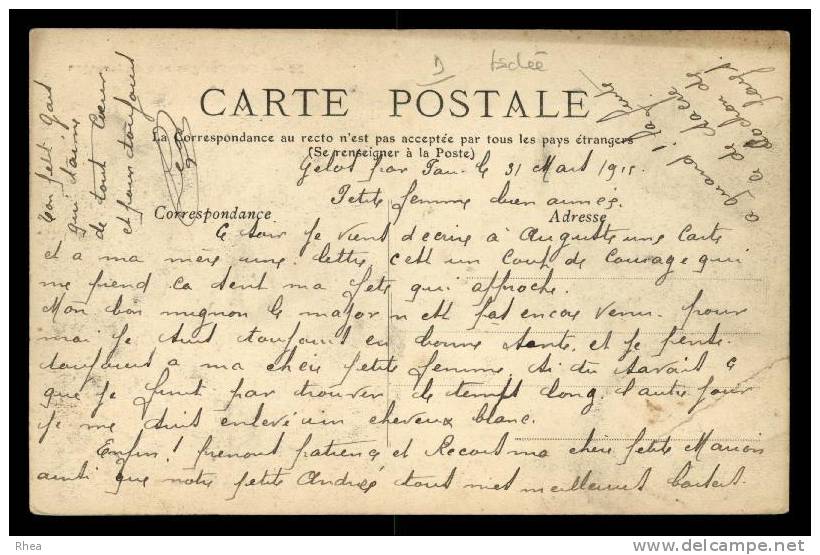 Isdée
CARTE POSTALE
La Correspondance au recto n'est pas acceptée par tous les pays étrangers
(Se renseigner à la Poste)
Gelos par Pau. le 31 Mars 1915
Petite femme bien aimée.
Correspondance
Adresse
Ce soir je vient d'ecrire à Auguste une Carte
et a ma mère une lettre c'est un Coup de Courage qui
me prend ca sent ma fete qui approche.
Mon bon mignon le major n est pas encore venu. pour
moi je suis toujours en bonne santé, et je pense
toujours a ma chere petite femme. si tu savait ce
que je finis par trouver le temps long. l'autre jour
je me suis enlevé un cheveux blanc.
Enfin! prenons patience et Recois ma chère petite Marion
ainsi que notre petite Andrée tous mes meilleurs baisers.
Ton petit Gars
qui t'aime
de tout Coeur
et pour toujours
a quand la suite
Rhea
© delcampe.net